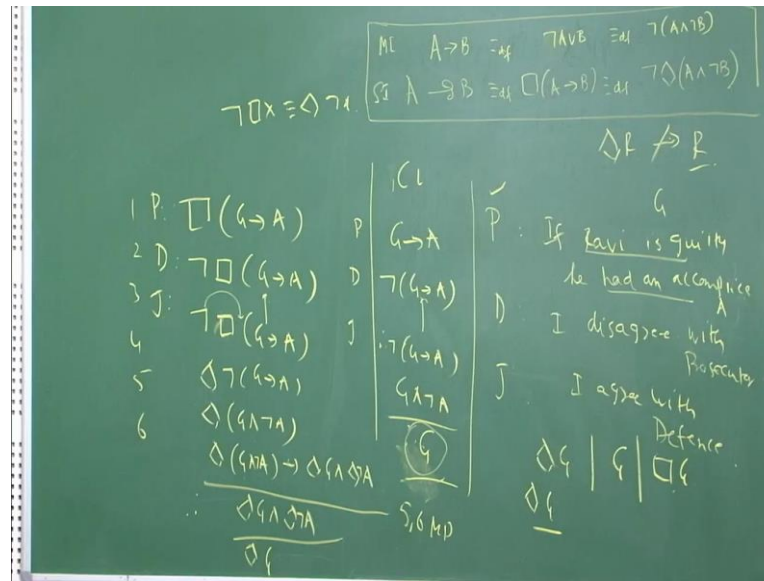 MI A→B ≡df ¬A∨B ≡df ¬(A∧¬B)
SI A⥽B ≡df □(A→B) ≡df ¬◇(A∧¬B)
¬□x ≡ ◇¬x
◇R ↛ R
1 P: □(G→A)
2 D: ¬□(G→A)
3 J:
4 ¬□(G→A)
5 ◇¬(G→A)
6 ◇(G∧¬A)
◇(G∧¬A)→◇G∧◇¬A
∴ ◇G∧◇¬A 5,6 MP
◇G
CL
P G→A
D ¬(G→A)
J ∴¬(G→A)
G∧¬A
G
G
P: If Ravi is guilty
he had an accomplice
A
D: I disagree with
Prosecutor
J I agree with
Defence
◇G | G | □G
◇G